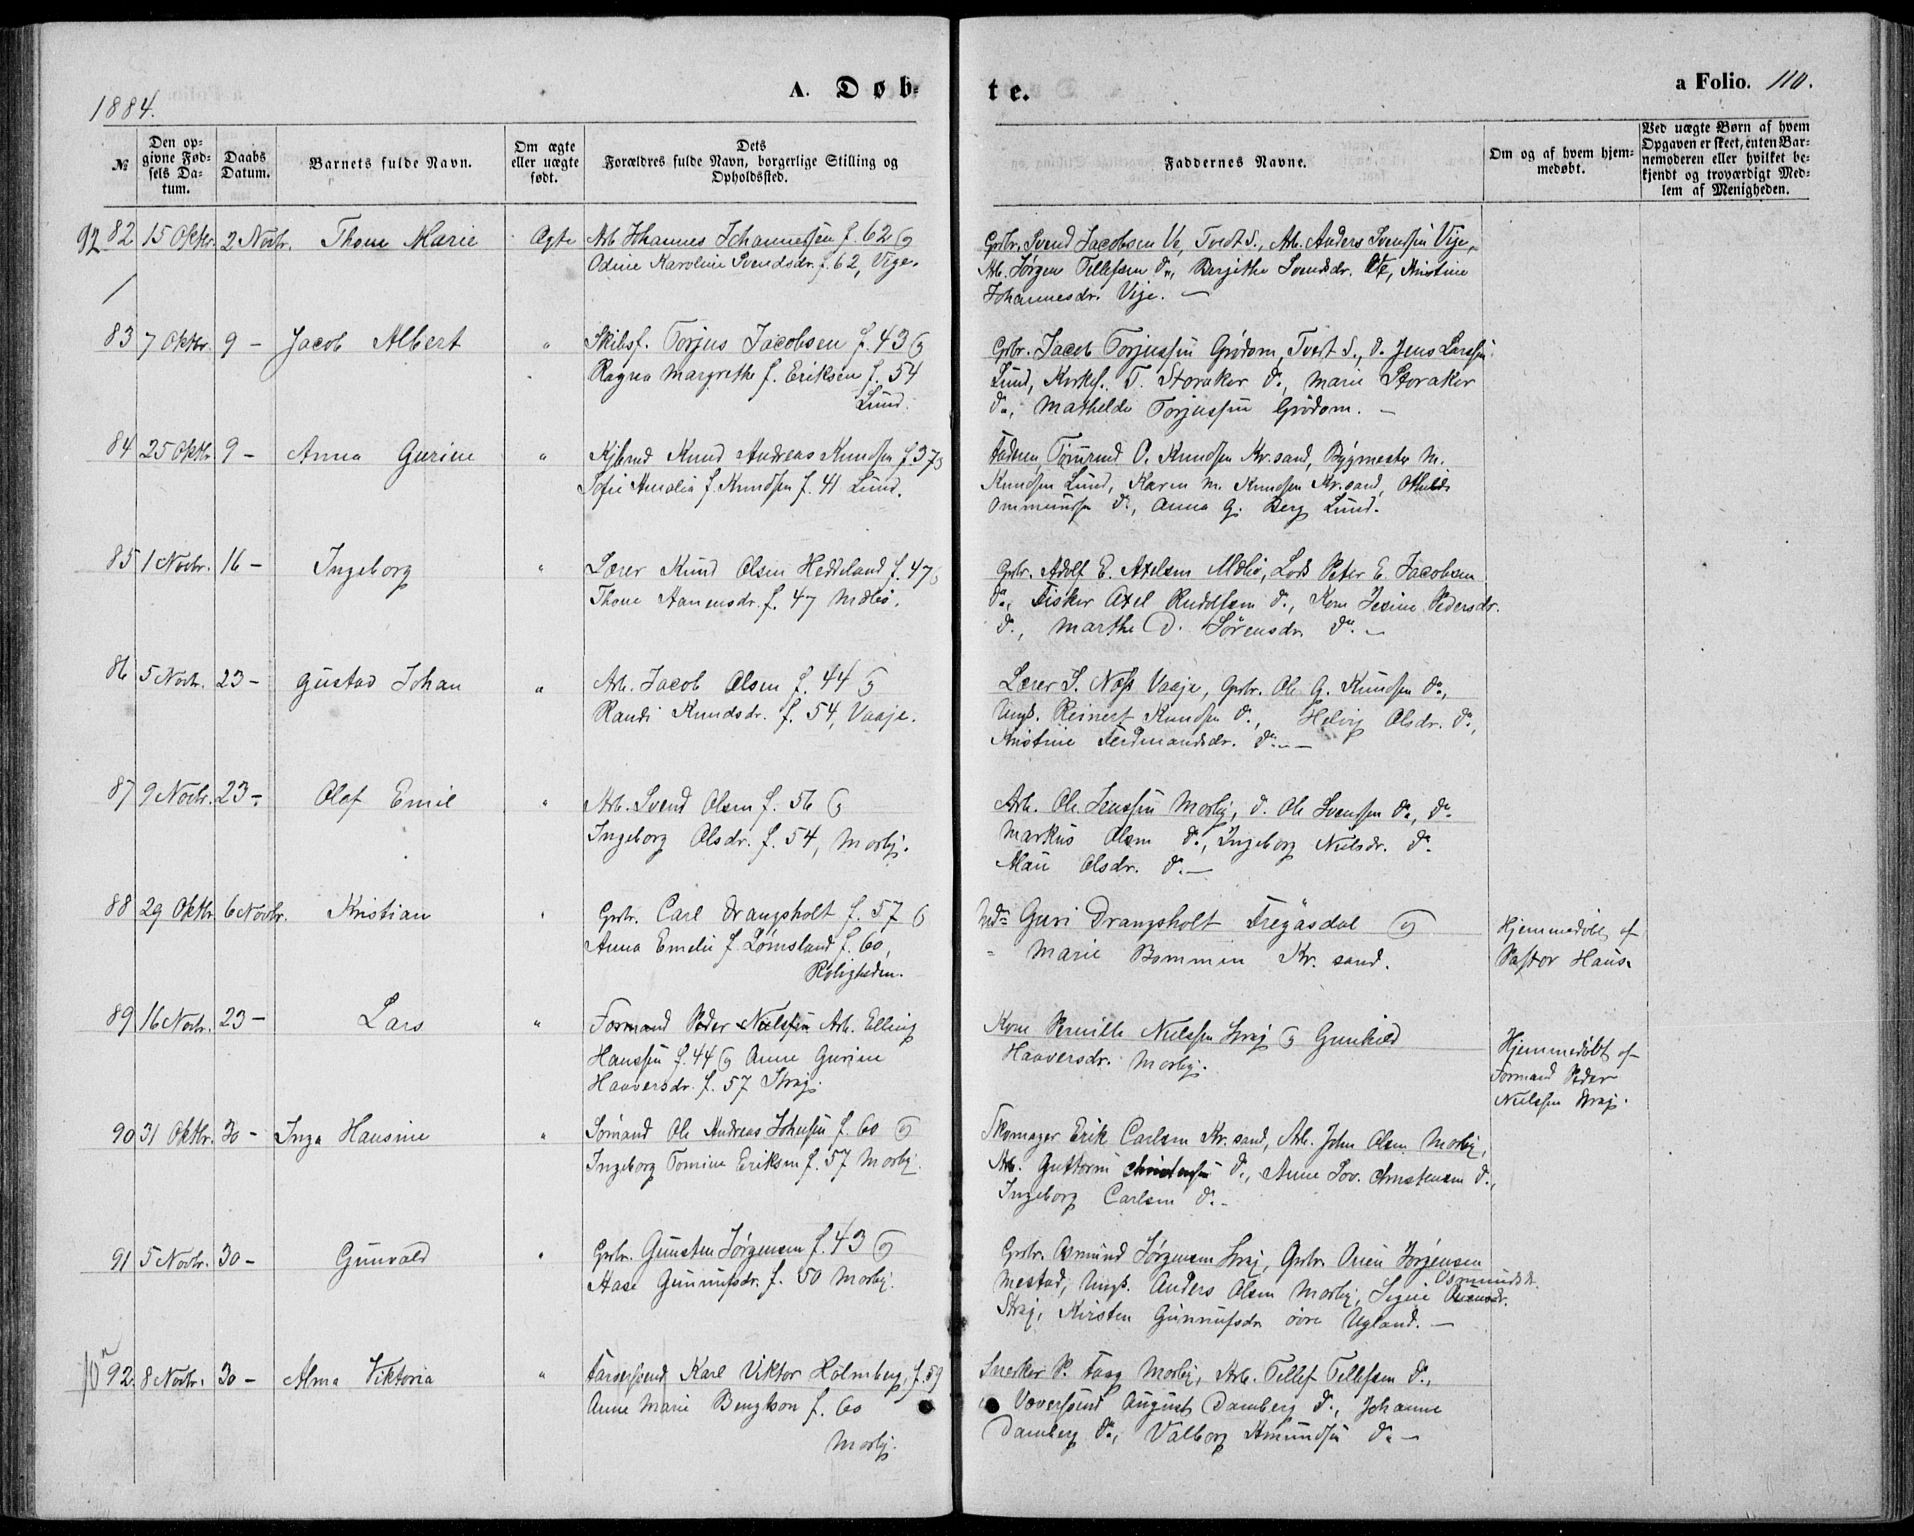 A. Døb-
te.
a Folio. 110.
1884.
№
Den op-
givne Fød-
sels Da-
tum.
Daabs
Datum.
Barnets fulde Navn.
Om ægte
eller uægte
født.
Dets
Forældres fulde Navn, borgerlige Stilling og
Opholdssted.
Faddernes Navne.
Om og af hvem hjem-
medøbt.
Ved uægte Børn af hvem
Opgaven er skeet, enten Bar-
nemoderen eller hvilket be-
kjendt og troværdigt Med-
lem af Menigheden.
82 15 Oktbr. 2 Novbr. Thone Marie Ægte Arb. Johannes Johannessen f. 62 og
Odine Karoline Svendsdr. f. 62, Vige.
Gbr. Svend Jacobsen Ve, Tvedt S., Arb. Anders Svendsen Vije,
Arb. Jørgen Tellefsen do, Berjithe Svendsdr. Ve, Kristine
Johannesdr. Vije. —
83 7 Oktbr. 9 — Jacob Albert " Skibsf. Torjus Jacobsen f. 43 og
Ragna Margrethe f. Eriksen f. 54
Lund.
Gbr. Jacob Torjussen Grødom, Tvedt S., do Jens Larssen
Lund, Kirkes. T. Storaker do, Marie Storaker
do, Mathilde Torjussen Grødom. —
84 25 Oktbr. 9 — Anna Gurine " Kjbmd Knud Andreas Knudsen f. 37 og
Sofie Amalia f. Knudsen f. 41 Lund.
Faderen, Tømrmd O. Knudsen Kr.sand, Bygmester M.
Knudsen Lund, Karen M. Knudsen Kr.sand, Othilde
Ommundsen do, Anna G. Berg Lund.
85 1 Novbr. 16 — Ingeborg " Lærer Knud Olsen Heddeland f. 47 og
Thone Hansensdr. f. 47 Mæbø.
Gbr. Adolf E. Axelsen Mæbø, Lods Peter E. Jacobsen
do, Fisker Axel Rudolfsen do, Kone Jesine Pedersdr.
do, Marthe D. Sørensdr. do —
86 5 Novbr. 23 — Gustav Johan " Arb. Jacob Olsen f. 44 og
Randi Knudsdr. f. 54, Vaaje.
Lærer S. Næss Vaaje, Gbr. Ole G. Knudsen do,
Ungk. Reinert Knudsen do, Helvig Olsdr. do,
Kristine Ferdinandsdr. do —
87 9 Novbr. 23 — Olaf Emil " Arb. Svend Olsen f. 56 og
Ingeborg Olsdr. f. 54, Mosby.
Arb. Ole Jenssen Mosby, do Ole Svenssen do, do
Markus Olsen do, Ingeborg Nielsdr. do
Mari Olsdr. do —
88 29 Oktbr. 6 Novbr. Kristian " Gbr. Carl Drangsholt f. 57 og
Anna Emelie f. Lømsland f. 60,
Roligheden.
Mad= Guri Drangsholt Fregåsdal og
" Marie Bommen Kr.sand.
Hjemmedøbt af
Pastor Hans.
89 16 Novbr. 23 — Lars " Formand Peder Nielssen Arb. Elling
Hanssen f. 44 og Anne Gurine
Haaversdr. f. 57 Strai.
Kone Pernille Nielssen Strai og Gunhild
Haaversdr. Mosby.
Hjemmedøbt af
Formand Peder
Nielssen Strai.
90 31 Oktbr. 30 — Inga Hansine " Sømand Ole Andreas Johnsen f. 60 og
Ingeborg Tomine Eriksen f. 57 Mosby.
Skomager Erik Carlsen Kr.sand, Arb. John Olsen Mosby,
Arb. Guttorm Christensen do, Anne Lov. Christensen do,
Ingeborg Carlsen do —
91 5 Novbr. 30 — Gunvald " Gbr. Gunsten Jørgensen f. 43 og
Aase Gunnufsdr. f. 50 Mosby.
Gbr. Osmund Jørgensen Strai, Gbr. Onen Jørgensen
Mestad, Ungk. Anders Olsen Mosby, Signe Osmundsdr.
Strai, Kirsten Gunnufsdr. øvre Ugland. —
92 8 Novbr. 30 — Alma Viktoria " Farversvend Karl Viktor Holmberg f. 59
Anne Marie Bengtson f. 60
Mosby.
Snekker P. Faag Mosby, Arb. Tellef Tellefsen do,
Væversvend August Damberg do, Johanne
Damberg do, Valborg Amundsen do —